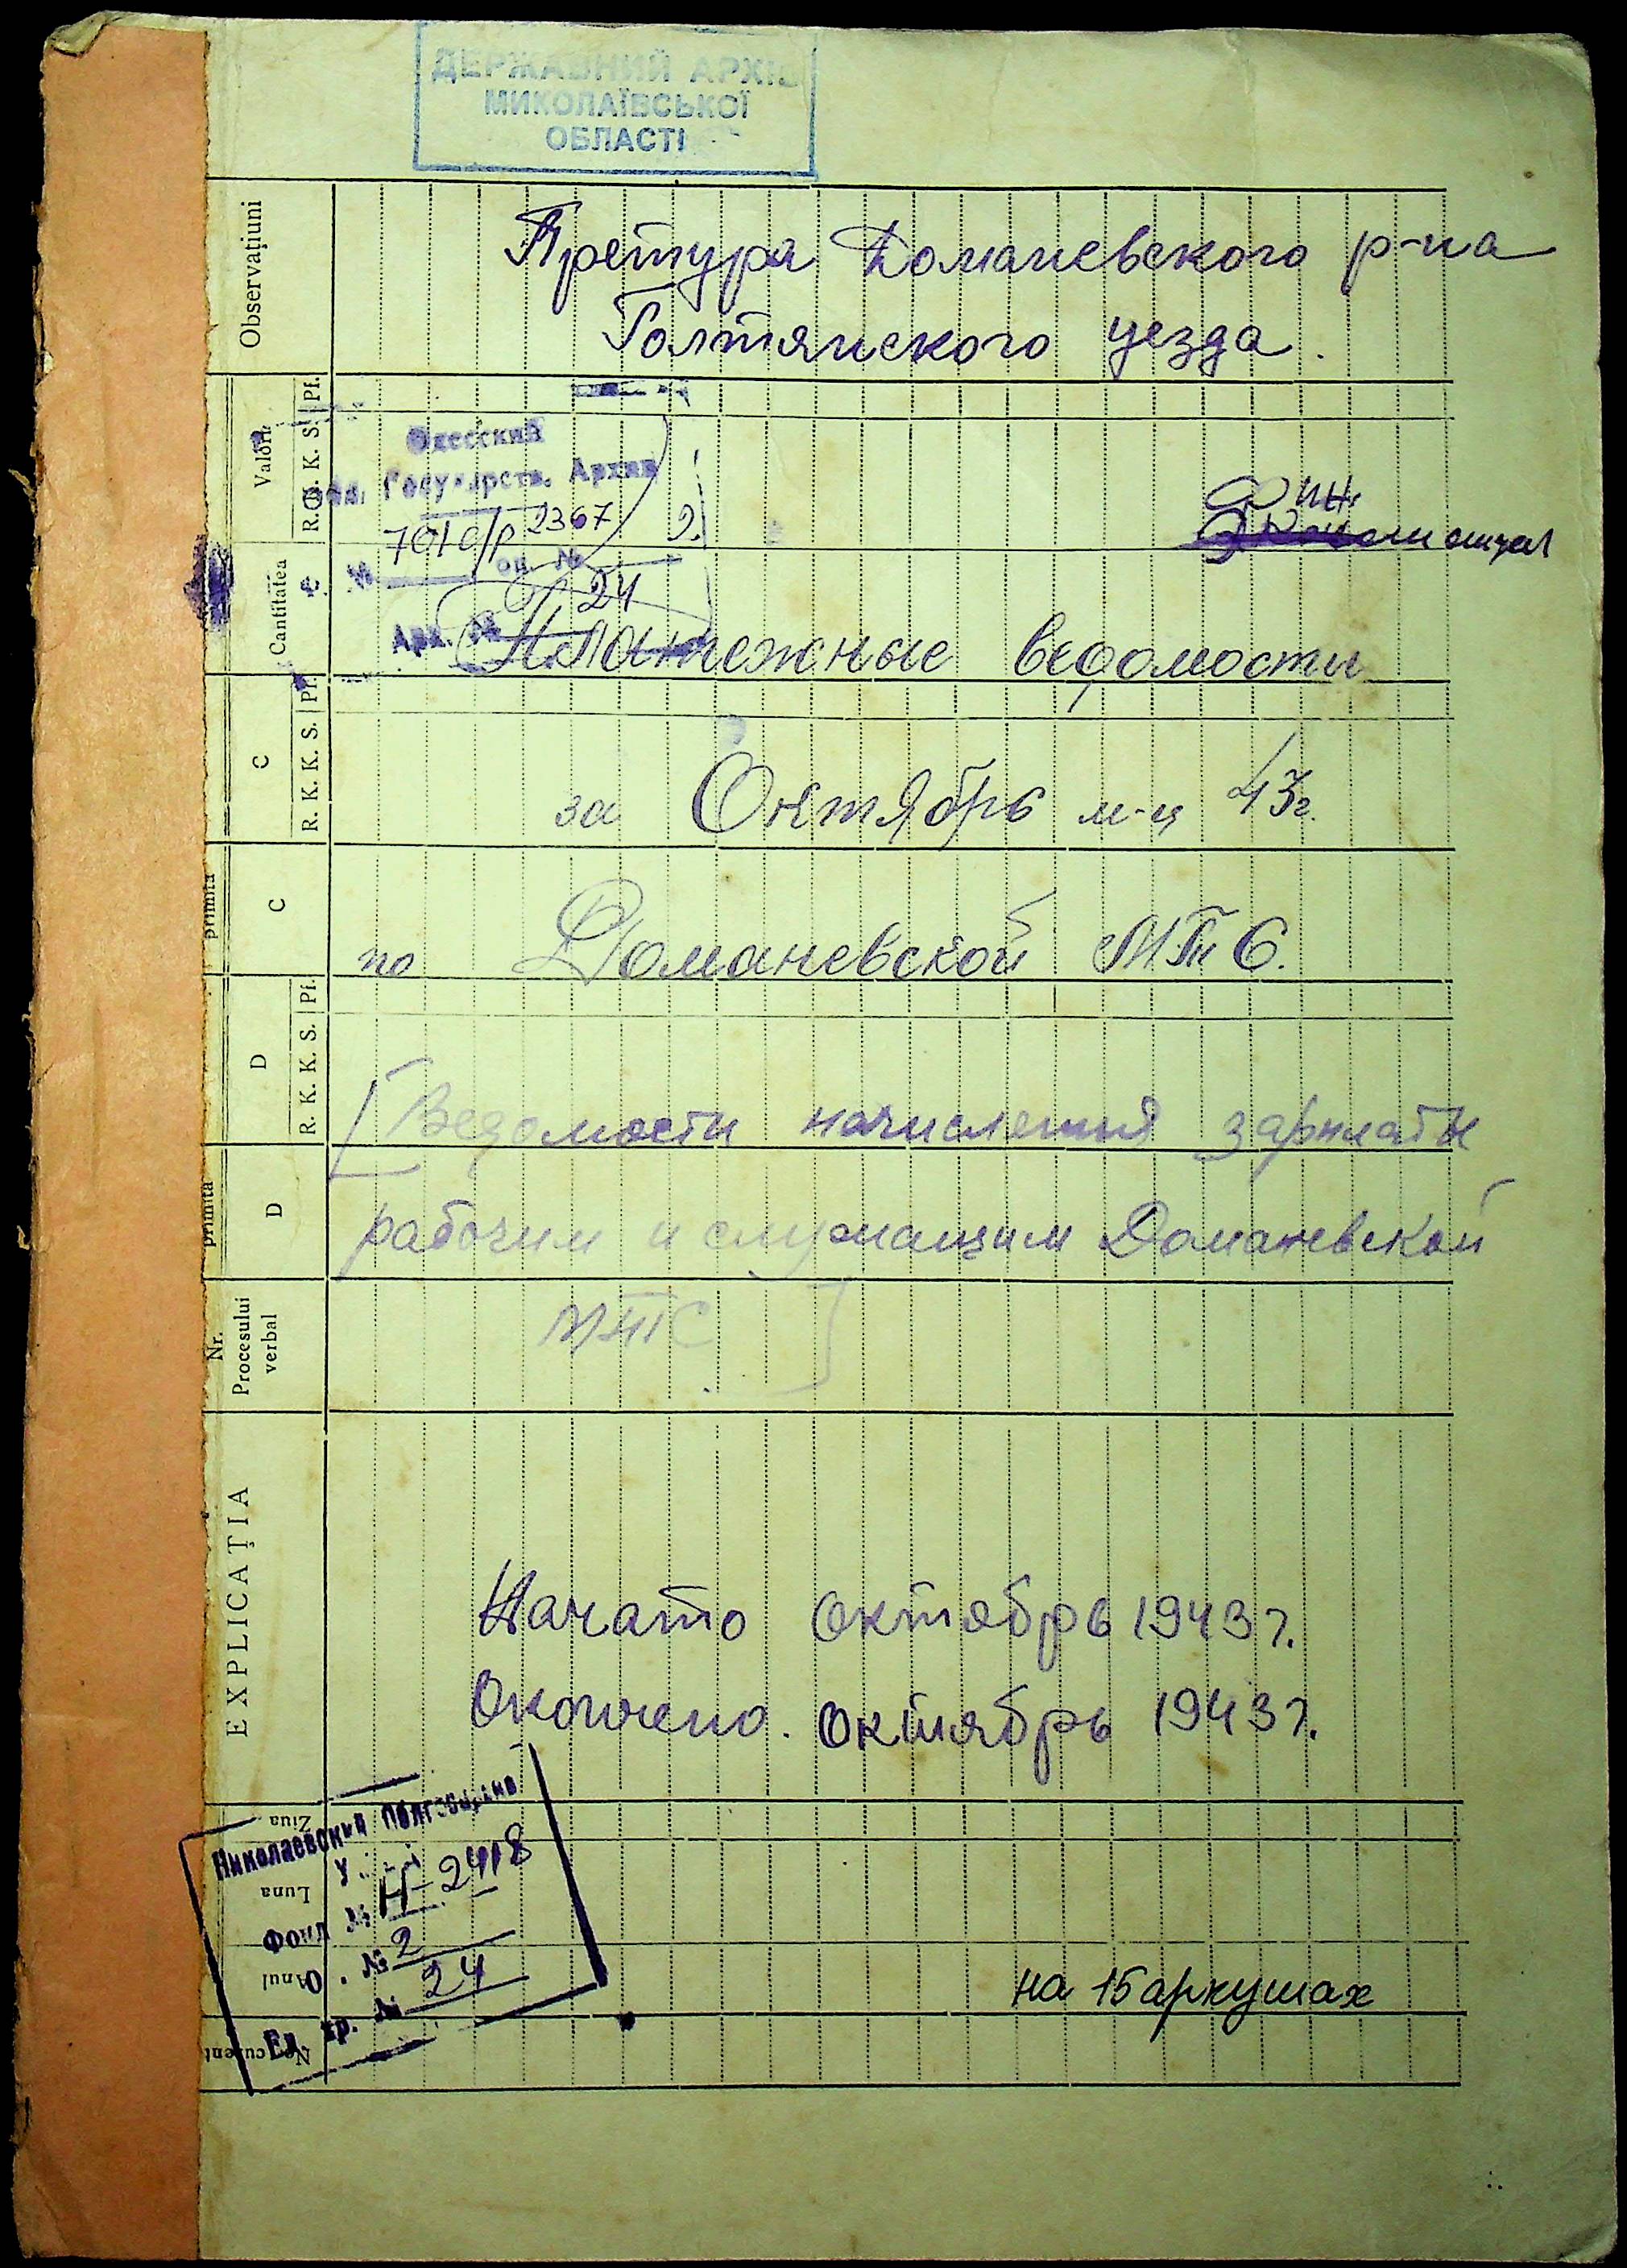 ДЕРЖАВНИЙ АРХІВ
МИКОЛАЇВСЬКОЇ
ОБЛАСТІ
Observațiuni
Претура Доманевского р-на
Голтянского уезда.
Valorii
R. K. K. S. Pf.
Одесский
Обл. Государств. Архив
701 с/р 2367 2
№ оп. №
24
Арх. №
Фин
Cantitatea
Платежные ведомости
C
R. K. K. S. Pf.
за Октябрь м-ц 43г.
primita
C
по Доманевской МТС.
D
R. K. K. S. Pf.
[Ведомости начисления зарплаты
primita
D
рабочим и служащим Доманевской
Nr.
Procesului
verbal
МТС]
EXPLICAȚIA
Начато Октябрь 1943 г.
Окончено. Октябрь 1943 г.
Ziua
Luna
Anul
Николаевский Облгосархив
Фонд № Н-2418
О. № 2
Ед. хр. № 24
на 15 аркушах